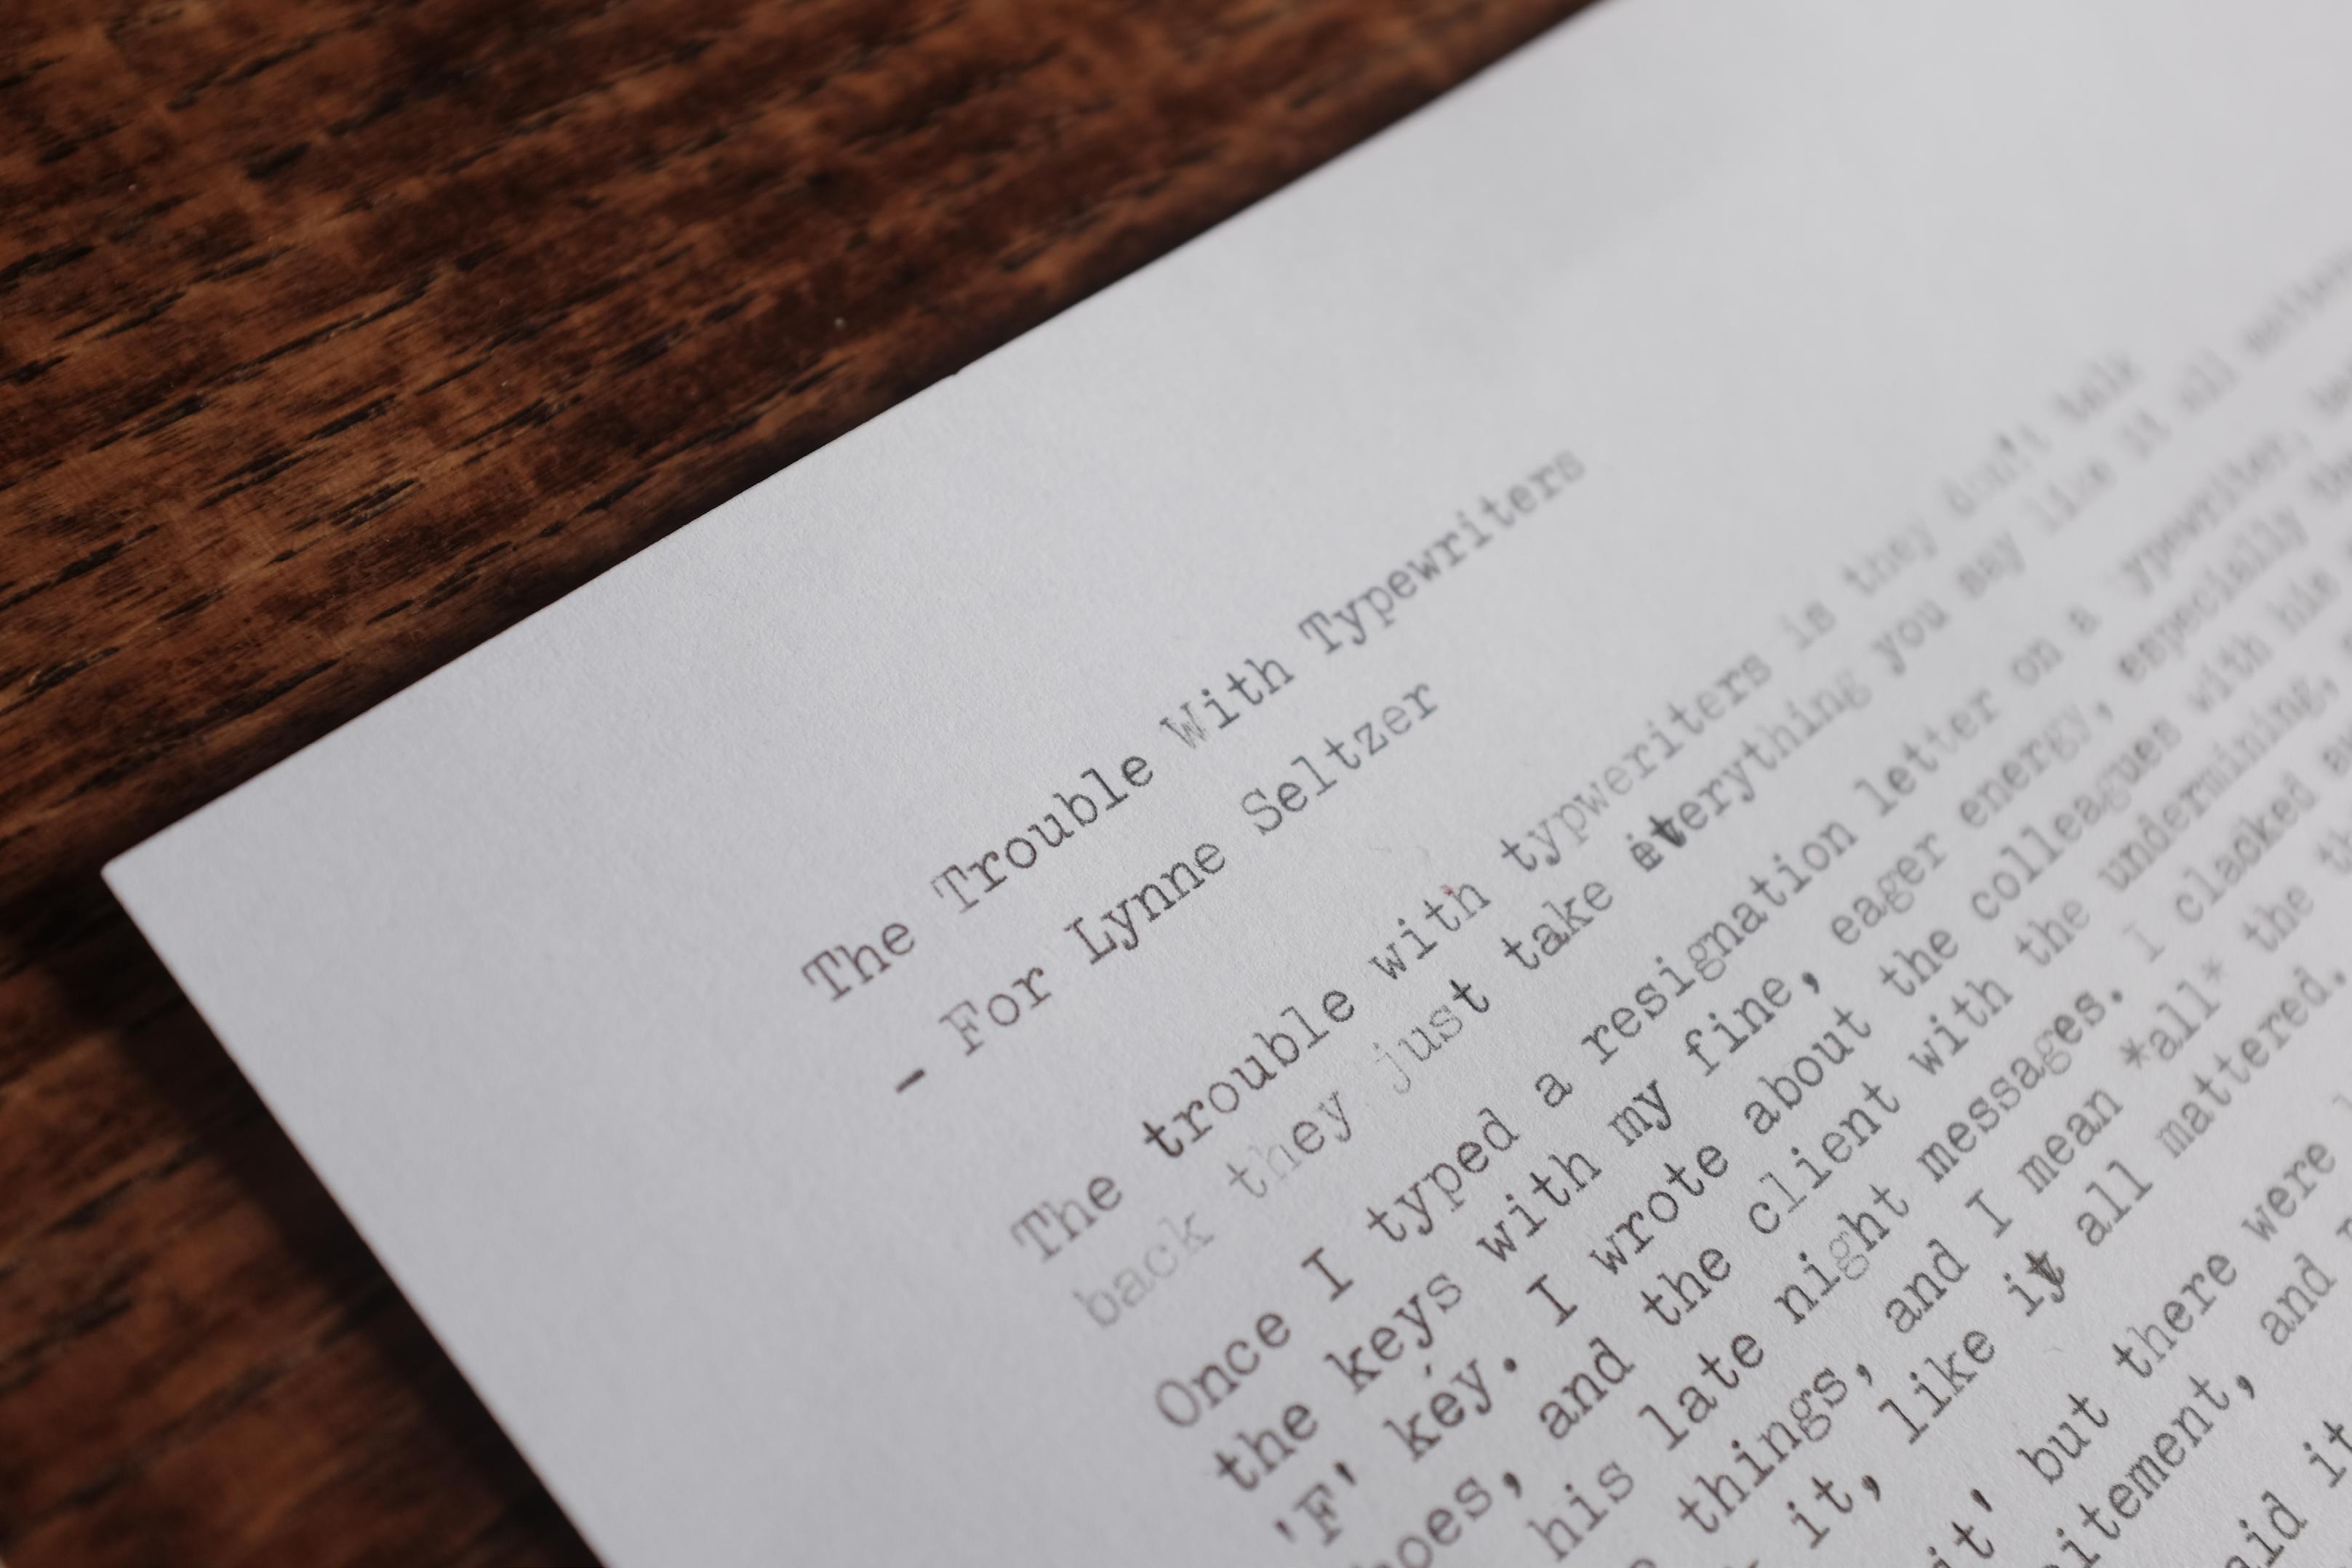 The Trouble With Typewriters
- For Lynne Seltzer
The trouble with typweriters is they don't talk
back they just take everything you say like it all
Once I typed a resignation letter on a ypewriter,
the keys with my fine, eager energy, especially the
'F' key. I wrote about the colleagues with his
hoes, and the client with the undermining,
his late night messages. I clacked
things, and I mean *all* the
it, like it all mattered.
it' but there were
itement, and
aid it